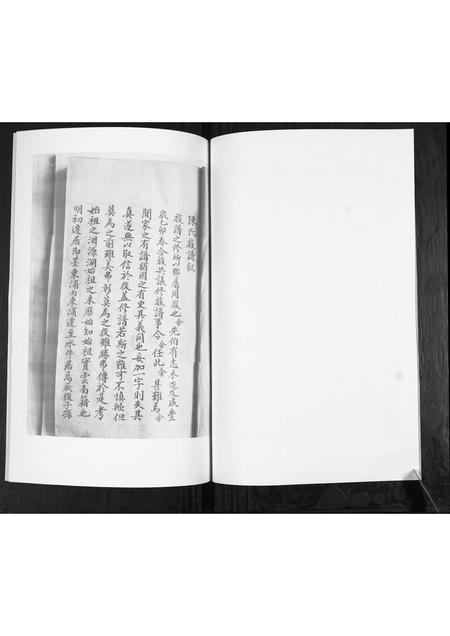 陳氏族譜敘
族譜之修所以聯屬同族也余先伯有志未逮及咸豐
歲乙卯春合族共議修族譜事令余任此余甚難焉余
聞家之有譜猶國之有史其義同也妄加一字則失其
真遂無以取信於後蓋修譜若斯之難可不慎歟但
莫為之前雖美弗彰莫為之後雖勝弗傳於是考
始祖之淵源溯始祖之來歷始知始祖實雲南籍也
明初遷居即墨東浦由東浦遷至水牛居焉厥後子孫